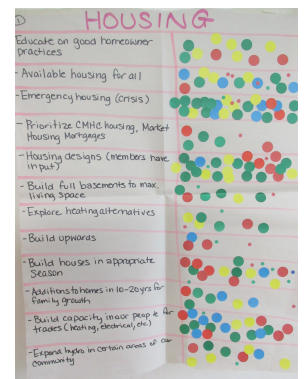 1
HOUSING
Educate on good homeowner
practices
- Available housing for all
- Emergency housing (crisis)
- Prioritize CMHC housing, Market
Housing Mortgages
- Housing designs (members have
input)
- Build full basements to max.
living space
- Explore heating alternatives
- Build upwards
- Build houses in appropriate
season
- Additions to homes in 10-20 yrs for
family growth
- Build capacity in our people for
trades (heating, electrical, etc)
- Expand hydro in certain areas of our
community